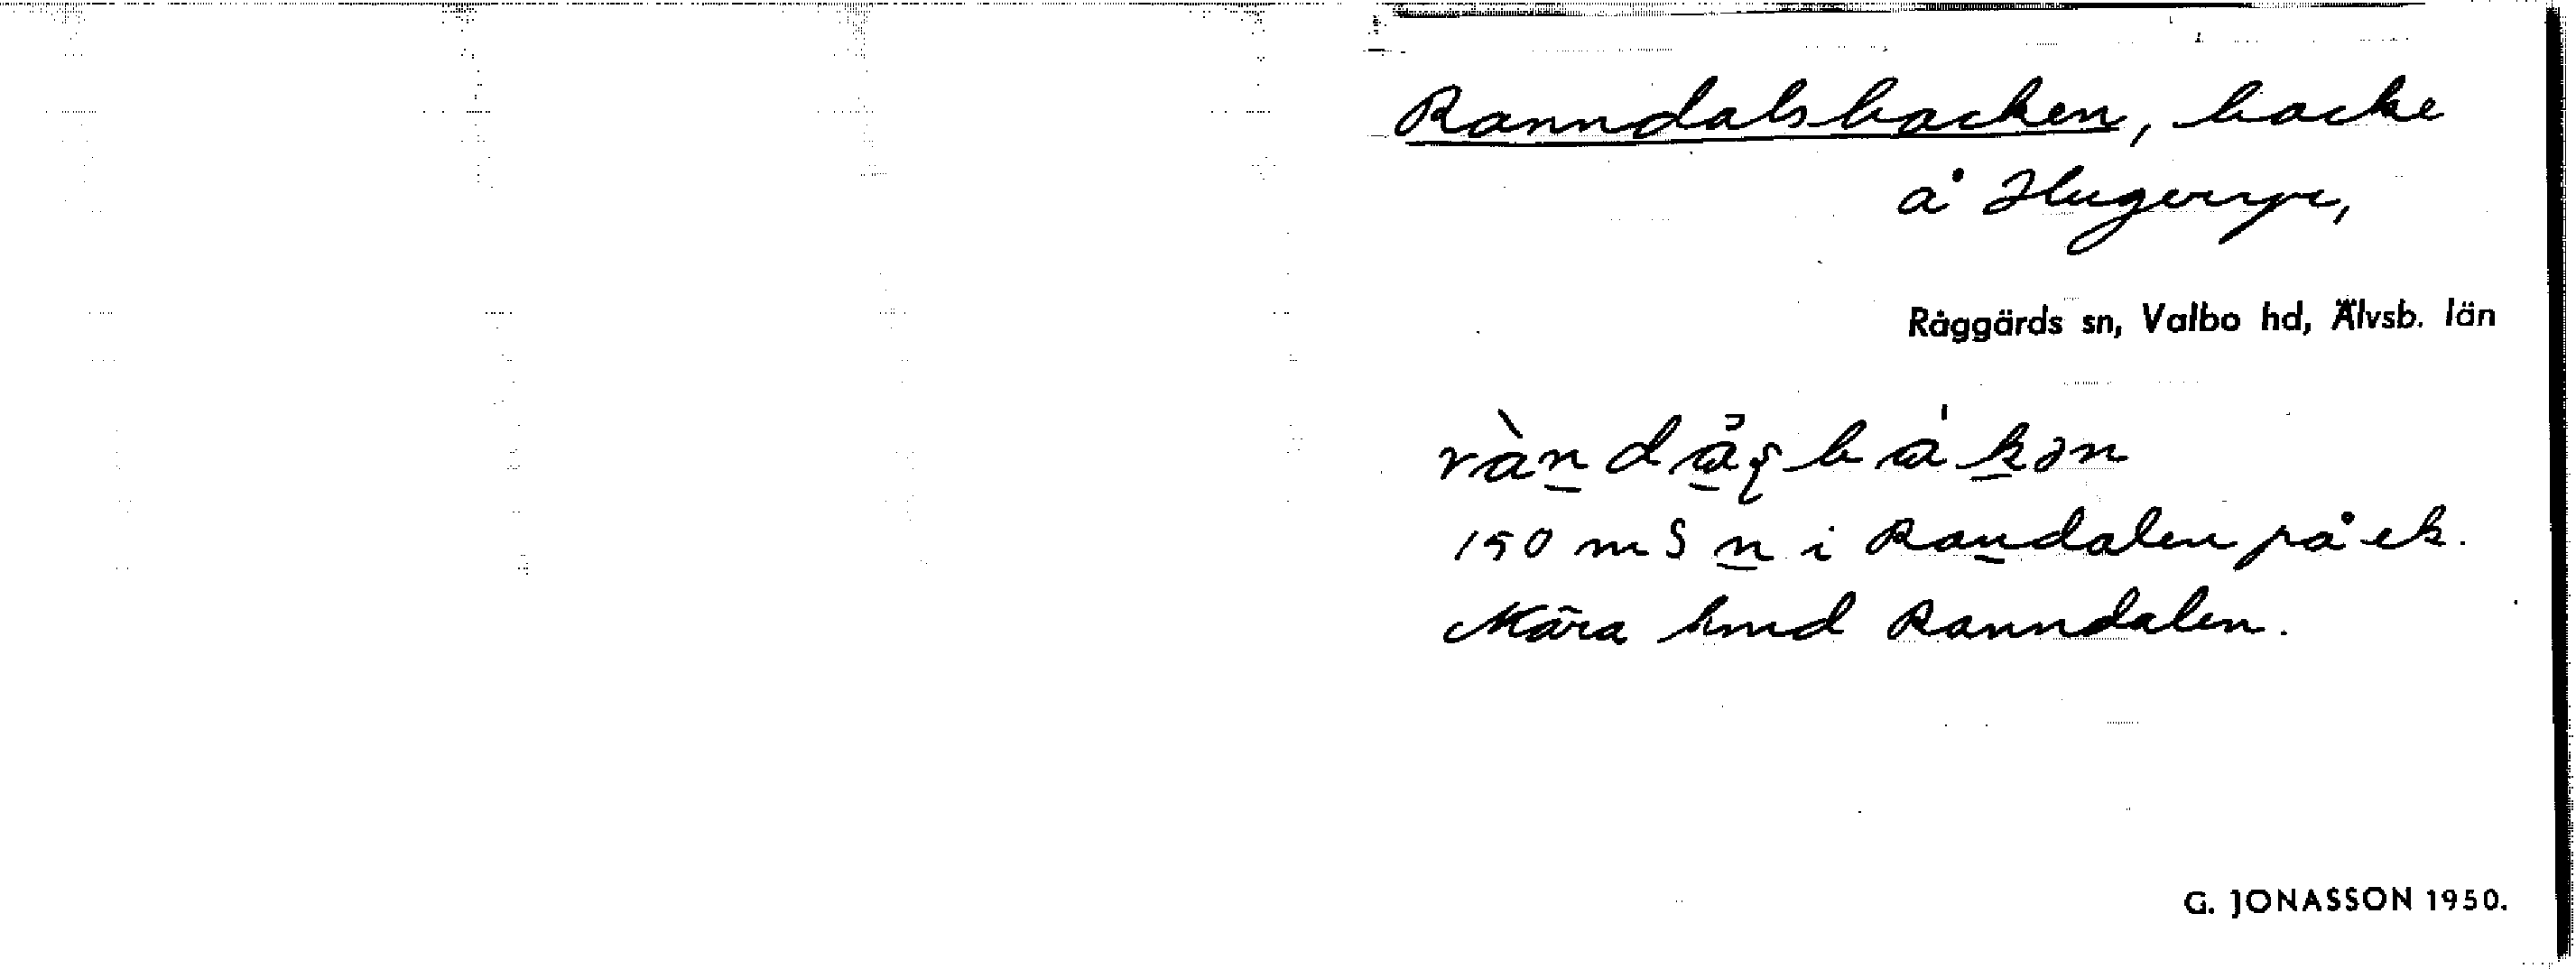 Ranndalsbacken, backe
å Hugeryr,
Råggärds sn, Valbo hd, Älvsb. län
ràndaʂbákən
150 m S n i Randalen på ek.
Nära hmd Ranndalen.
G. JONASSON 1950.